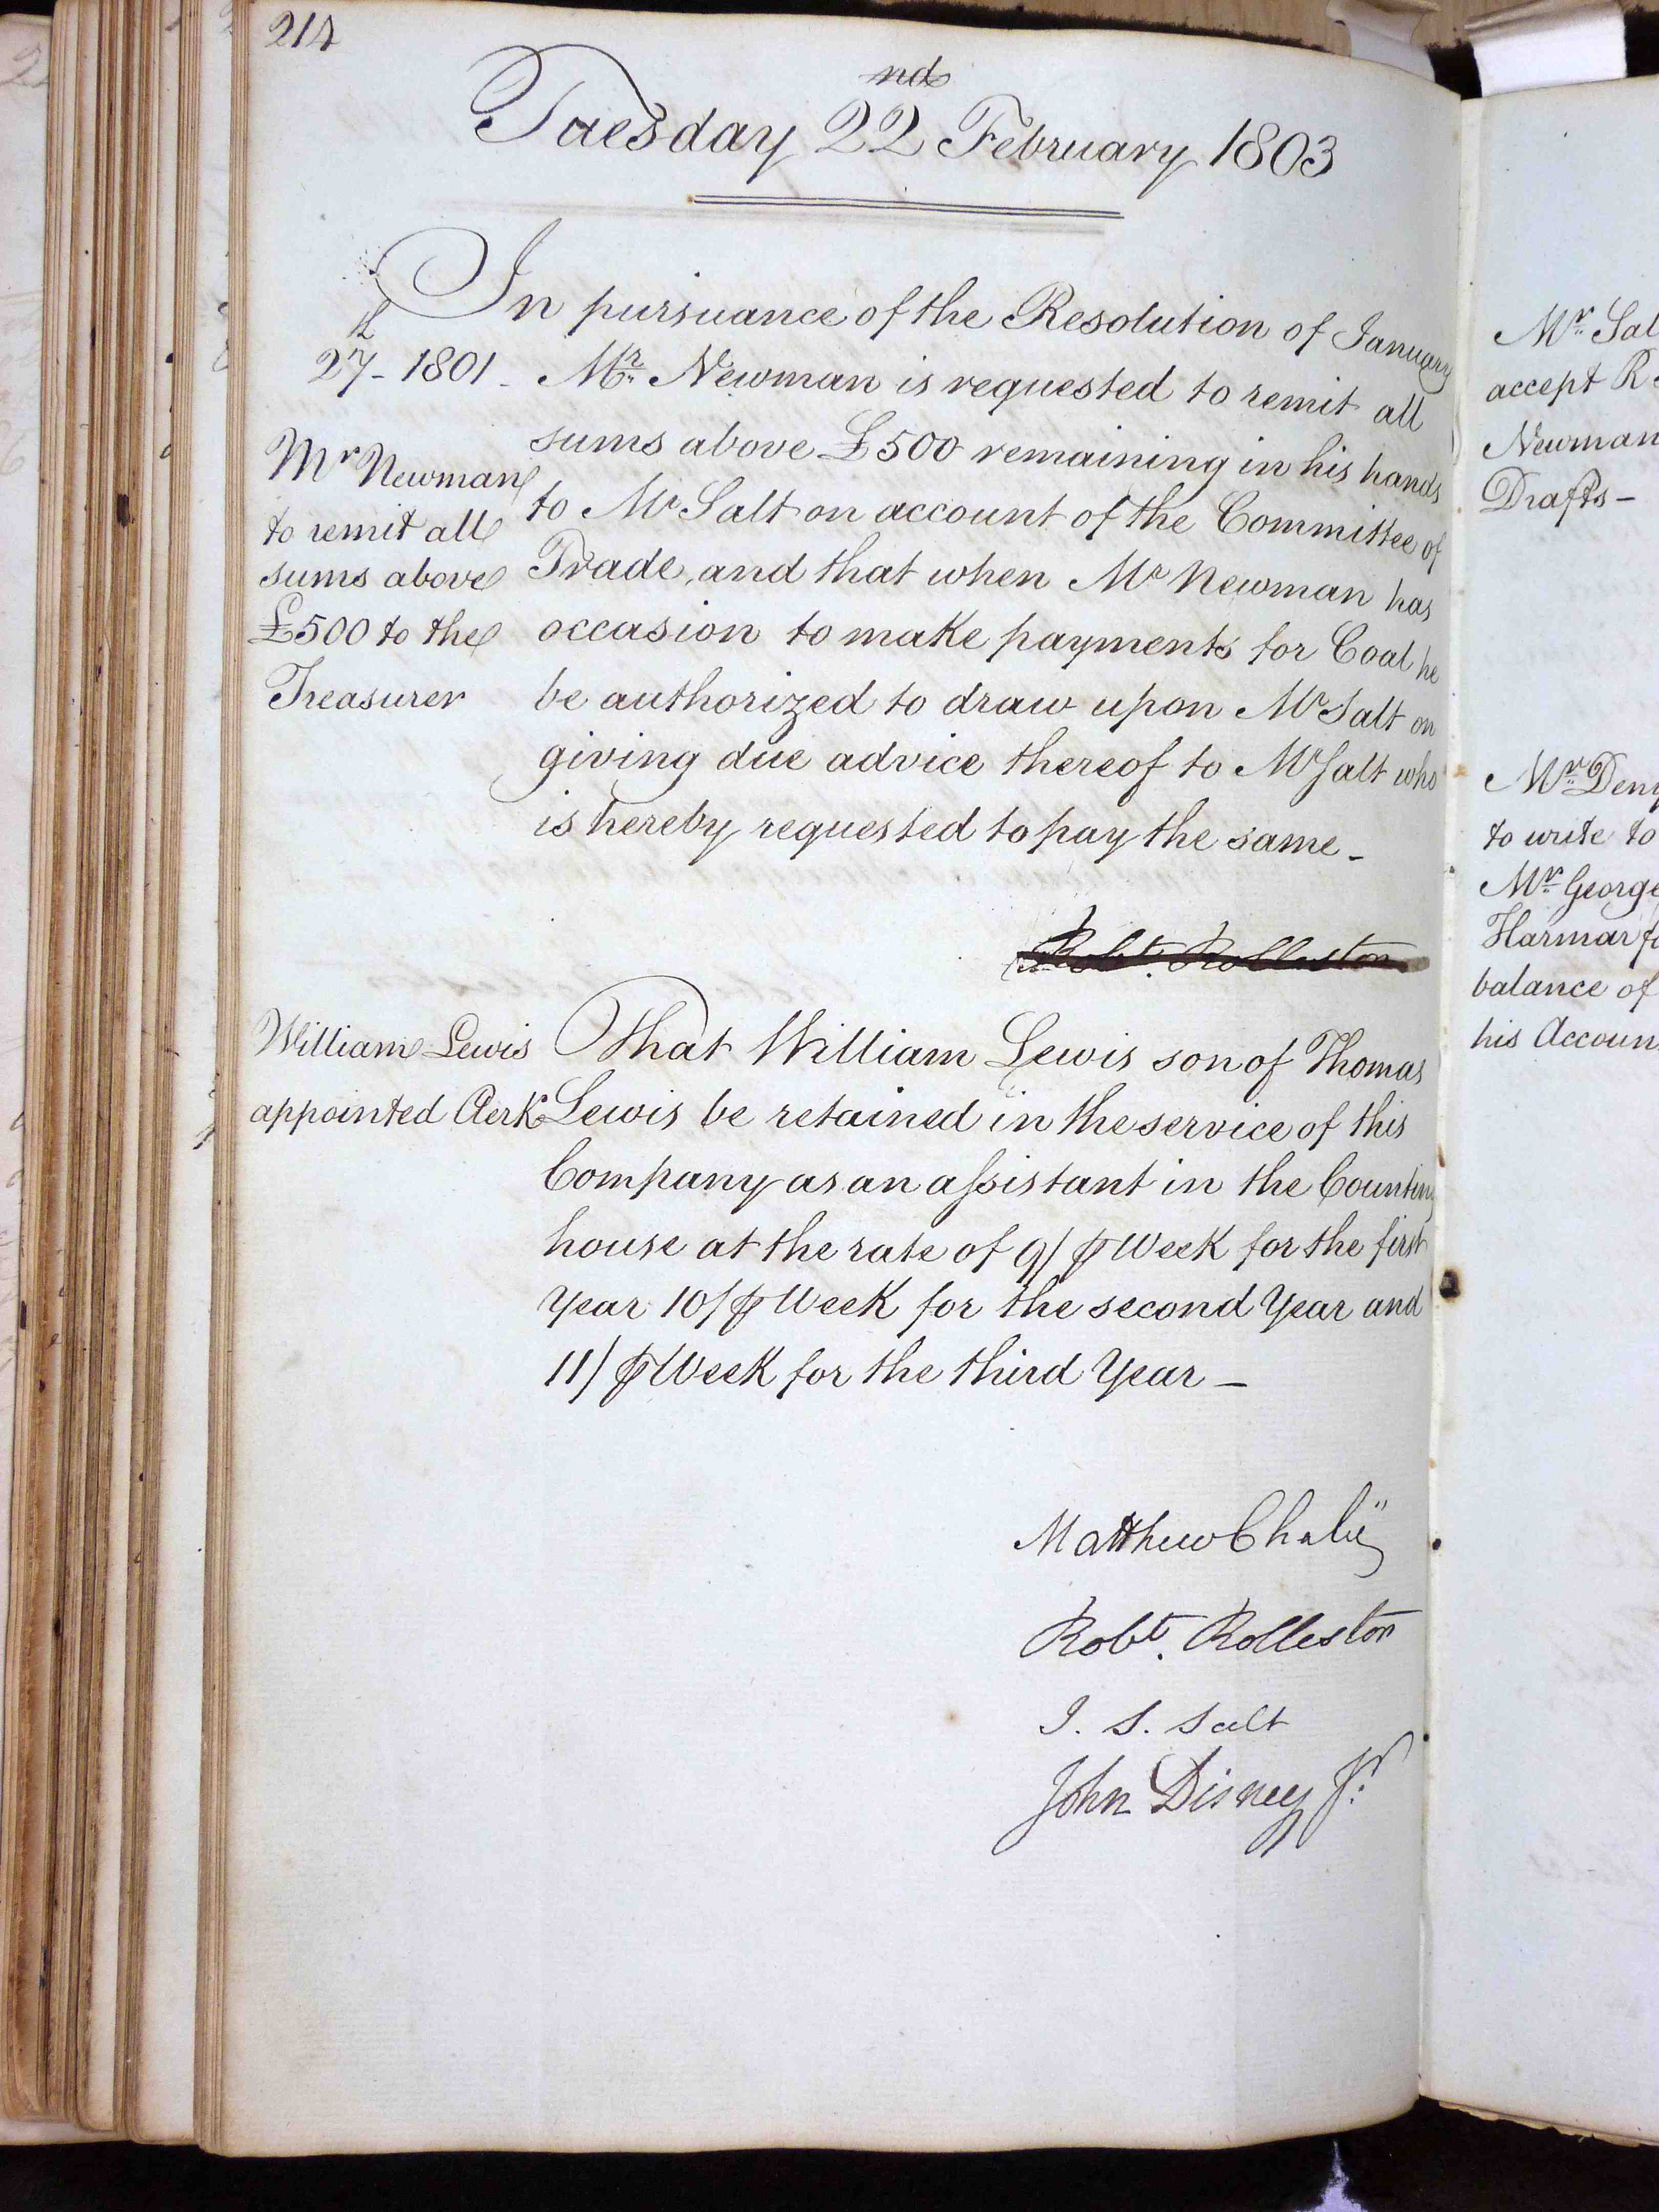 214
Tuesday 22nd February 1803
In pursuance of the Resolution of January
27th - 1801 - Mr. Newman is requested to remit all
sums above £500 remaining in his hands
to Mr Salt on account of the Committee of
Trade, and that when Mr Newman has
occasion to make payments for Coal he
be authorized to draw upon Mr Salt on
giving due advice thereof to Mr Salt who
is hereby requested to pay the same -
Mr Newman
to remit all
sums above
£500 to the
Treasurer
Robt. Rolleston
William Lewis
appointed Clerk
That William Lewis son of Thomas
Lewis be retained in the service of this
Company as an assistant in the Counting
house at the rate of 9/ ⅌ Week for the first
Year 10/ ⅌ Week for the second Year and
11/ ⅌ Week for the third Year -
Matthew Chalié
Robt. Rolleston
J. S. Salt
John Disney Jr.
Mr. Sal
accept R
Newman
Drafts -
Mr. Deny
to write to
Mr. George
Harmar fo
balance of
his Accoun